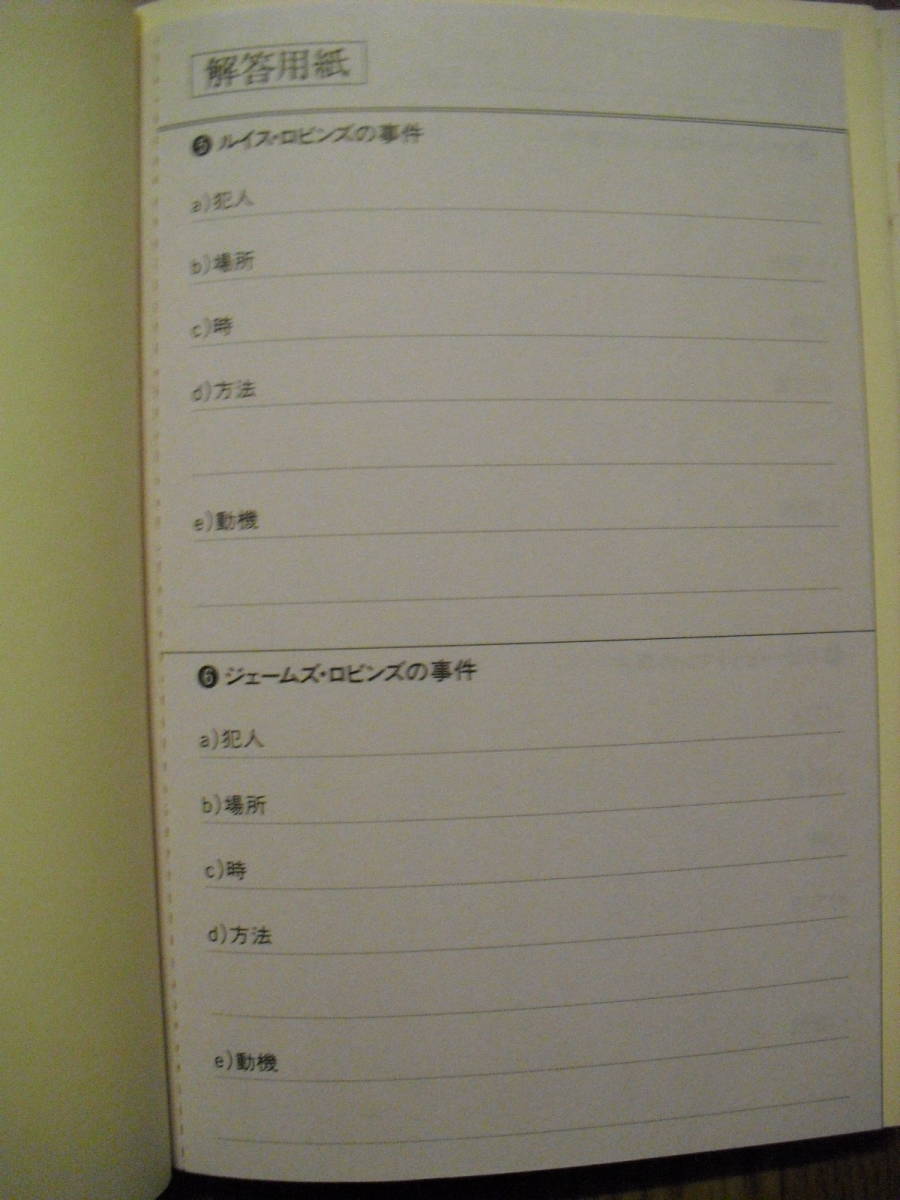 解答用紙
❺ルイス・ロビンズの事件
a)犯人
b)場所
c)時
d)方法
e)動機
❻ジェームズ・ロビンズの事件
a)犯人
b)場所
c)時
d)方法
e)動機